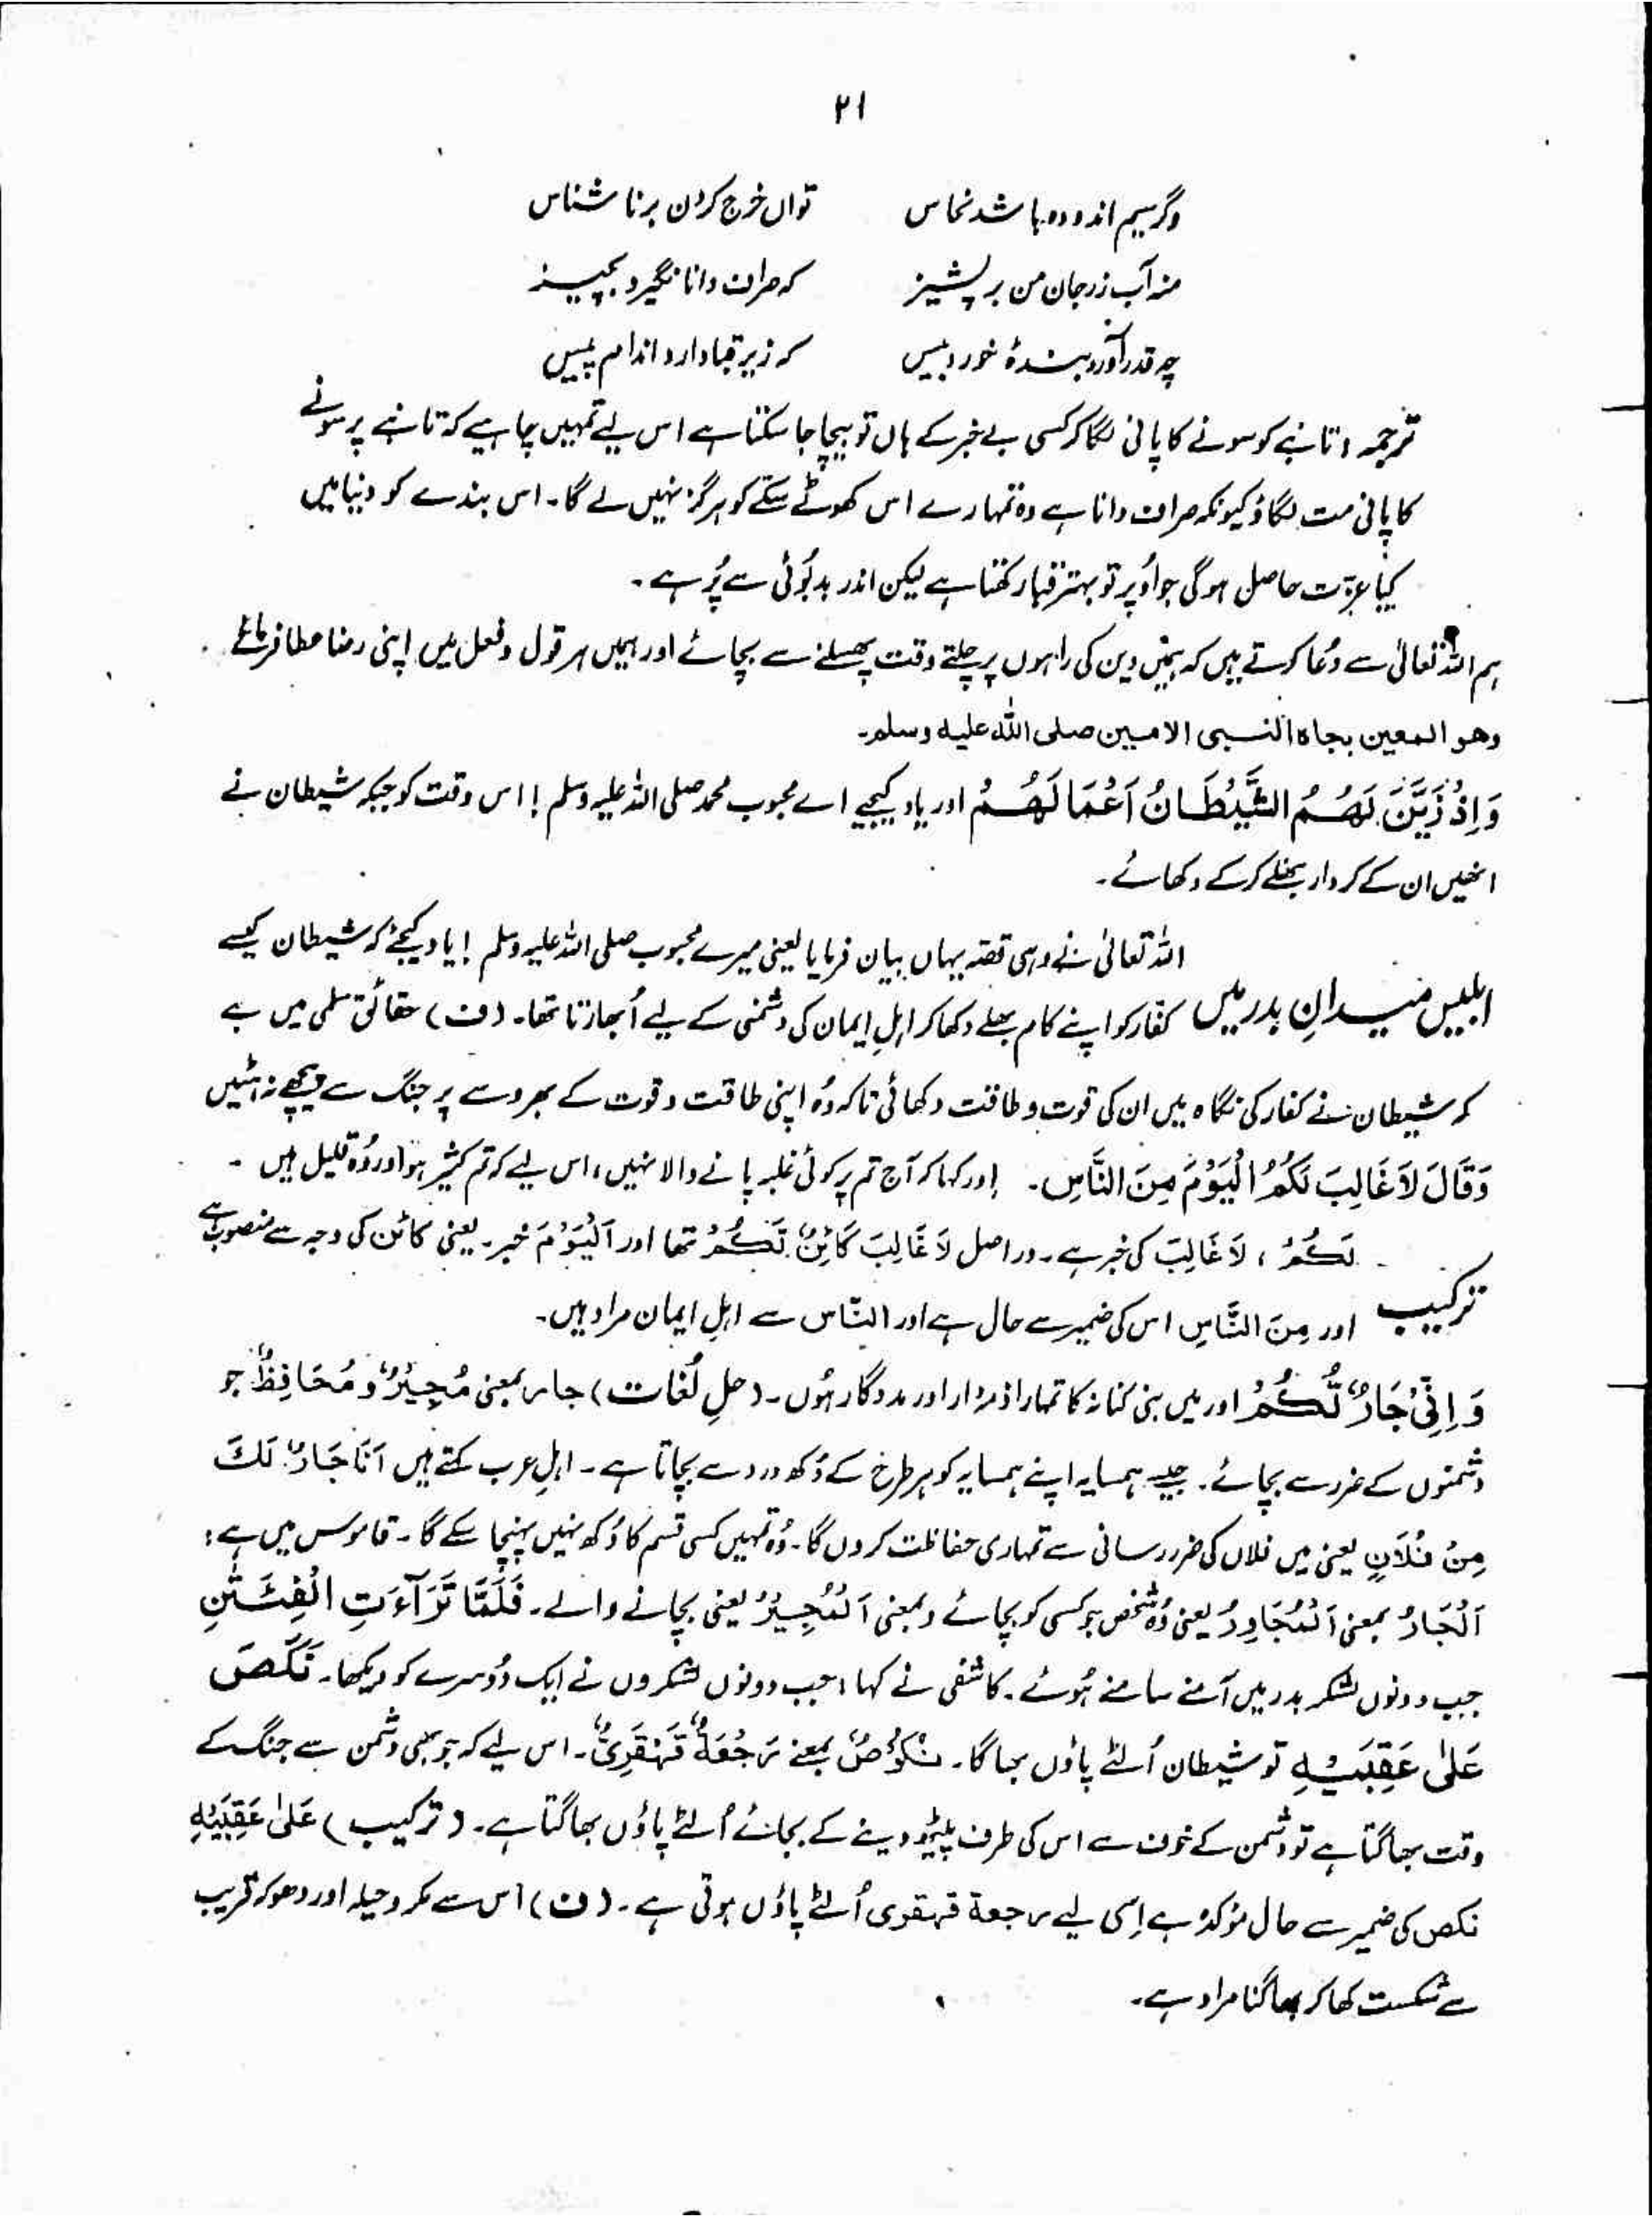 ۲۱
وگر سیم اندودہ باشد نحاس تواں خرج کردن بر ناشناس
منہ آب زر جان من بر پشیز کہ صراف دانا نگیرد بچیز
چہ قدر آورد بندۂ خورد بیس کہ زیر قبا دارد اندام پیس
ترجمہ : تانبے کو سونے کا پانی لگا کر کسی بے خبر کے ہاں تو بیچا جا سکتا ہے اس لیے تمہیں چاہیے کہ تانبے پر سونے
کا پانی مت لگاؤ کیونکہ صراف دانا ہے وہ تمہارے اس کھوٹے سکّے کو ہرگز نہیں لے گا۔ اس بندے کو دنیا میں
کیا عزّت حاصل ہوگی جو اُوپر تو بہتر قبا رکھتا ہے لیکن اندر بدبُوئی سے پُر ہے۔
ہم اللہ تعالیٰ سے دُعا کرتے ہیں کہ ہمیں دین کی راہوں پر چلتے وقت پھسلنے سے بچائے اور ہمیں ہر قول و فعل میں اپنی رضا عطا فرمائے
وھو المعین بجاہ النبی الامین صلی اللہ علیہ وسلم۔
وَاِذْ زَيَّنَ لَهُمُ الشَّيْطَانُ اَعْمَالَهُمْ اور یاد کیجیے اے محبوب محمد صلی اللہ علیہ وسلم ! اس وقت کو جبکہ شیطان نے
انھیں ان کے کردار بھلے کر کے دکھائے۔
اللہ تعالیٰ نے وہی قصّہ یہاں بیان فرمایا یعنی میرے محبوب صلی اللہ علیہ وسلم ! یاد کیجئے کہ شیطان کیسے
ابلیس میدانِ بدر میں کفّار کو اپنے کام بھلے دکھا کر اہلِ ایمان کی دشمنی کے لیے اُبھارتا تھا۔ (ف) حقائق سلمی میں ہے
کہ شیطان نے کفار کی نگاہ میں ان کی قوت و طاقت دکھائی تاکہ وُہ اپنی طاقت و قوت کے بھروسے پر جنگ سے پیچھے نہ ہٹیں
وَقَالَ لَا غَالِبَ لَكُمُ الْيَوْمَ مِنَ النَّاسِ۔ اور کہا کہ آج تم پر کوئی غلبہ پانے والا نہیں، اس لیے کہ تم کثیر ہو اور وُہ قلیل ہیں۔
لَكُمْ ، لَا غَالِبَ کی خبر ہے۔ دراصل لَا غَالِبَ كَائِنٌ لَكُمْ تھا اور اَلْيَوْمَ خبر۔ یعنی کائن کی وجہ سے منصوب ہے
ترکیب اور مِنَ النَّاسِ اس کی ضمیر سے حال ہے اور النّاس سے اہلِ ایمان مراد ہیں۔
وَ اِنِّيْ جَارٌ لَّكُمْ اور میں بنی کنانہ کا تمہارا ذمہ دار اور مددگار ہُوں۔ (حلِ لُغات) جار بمعنی مُجِيْرٌ و مُحَافِظٌ جو
دشمنوں کے ضرر سے بچائے۔ جیسے ہمسایہ اپنے ہمسایہ کو ہر طرح کے دُکھ درد سے بچاتا ہے۔ اہلِ عرب کہتے ہیں اَنَا جَارٌ لَكَ
مِنْ فُلَانٍ یعنی میں فلاں کی ضرر رسانی سے تمہاری حفاظت کردوں گا۔ وُہ تمہیں کسی قسم کا دُکھ نہیں پہنچا سکے گا۔ قاموس میں ہے:
اَلْجَارُ بمعنی اَلْمُجَاوِرُ یعنی وُہ شخص جو کسی کو بچائے و بمعنی اَلْمُجِيْرُ یعنی بچانے والے۔ فَلَمَّا تَرَآءَتِ الْفِئَتٰنِ
جب دونوں لشکر بدر میں آمنے سامنے ہُوئے۔ کاشفی نے کہا : جب دونوں لشکروں نے ایک دُوسرے کو دیکھا۔ نَكَصَ
عَلٰى عَقِبَيْهِ تو شیطان اُلٹے پاؤں بھاگا۔ نُكُوْصٌ بمعنے رَجْعَةٌ قَهْقَرِىٌّ۔ اس لیے کہ جو بھی دشمن سے جنگ کے
وقت بھاگتا ہے تو دشمن کے خوف سے اس کی طرف پیٹھ دینے کے بجائے اُلٹے پاؤں بھاگتا ہے۔ (ترکیب) عَلٰى عَقِبَيْهِ
نکص کی ضمیر سے حال مؤکدہ ہے اِسی لیے رجعة قهقرى اُلٹے پاؤں ہوتی ہے۔ (ف) اس سے مکر و حیلہ اور دھوکہ فریب
سے شکست کھا کر بھاگنا مراد ہے۔